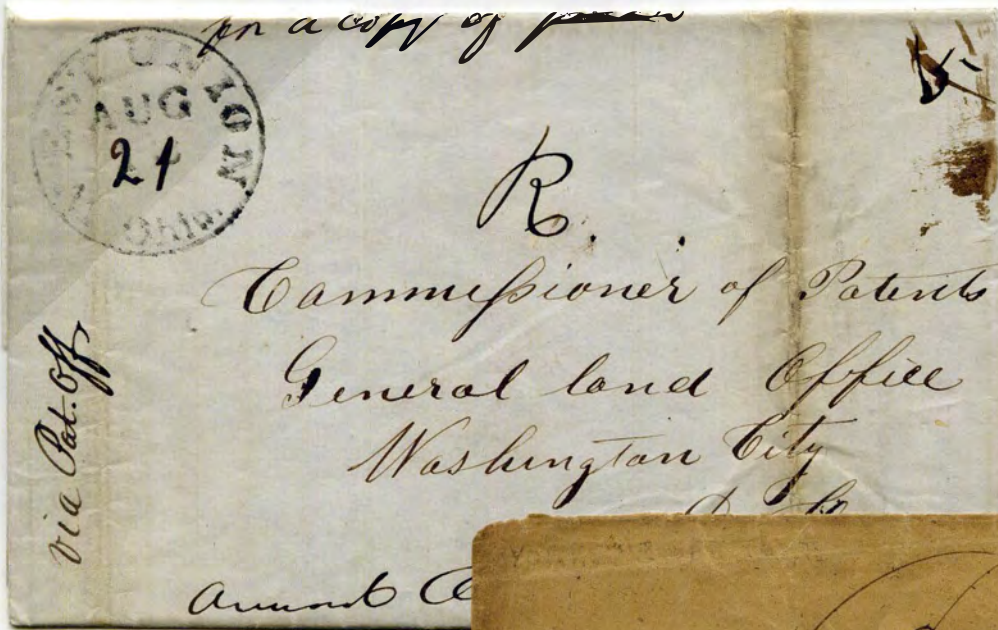 for a copy of
WEST UNION
AUG
21
Ohio.
R.
Commissioner of Patents
General land Office
Washington City
via Pat. Off